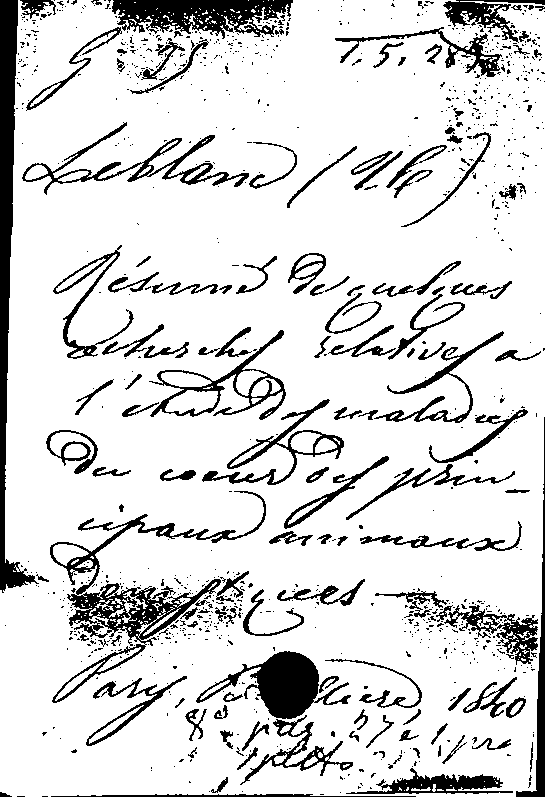 G 1.5.28
Leblanc (U.)
Résumé de quelques
recherches relatives a
l'étude des maladies
du coeur des prin-
cipaux animaux
domestiques.—
Paris, 1840
8° pág. 27 e 1